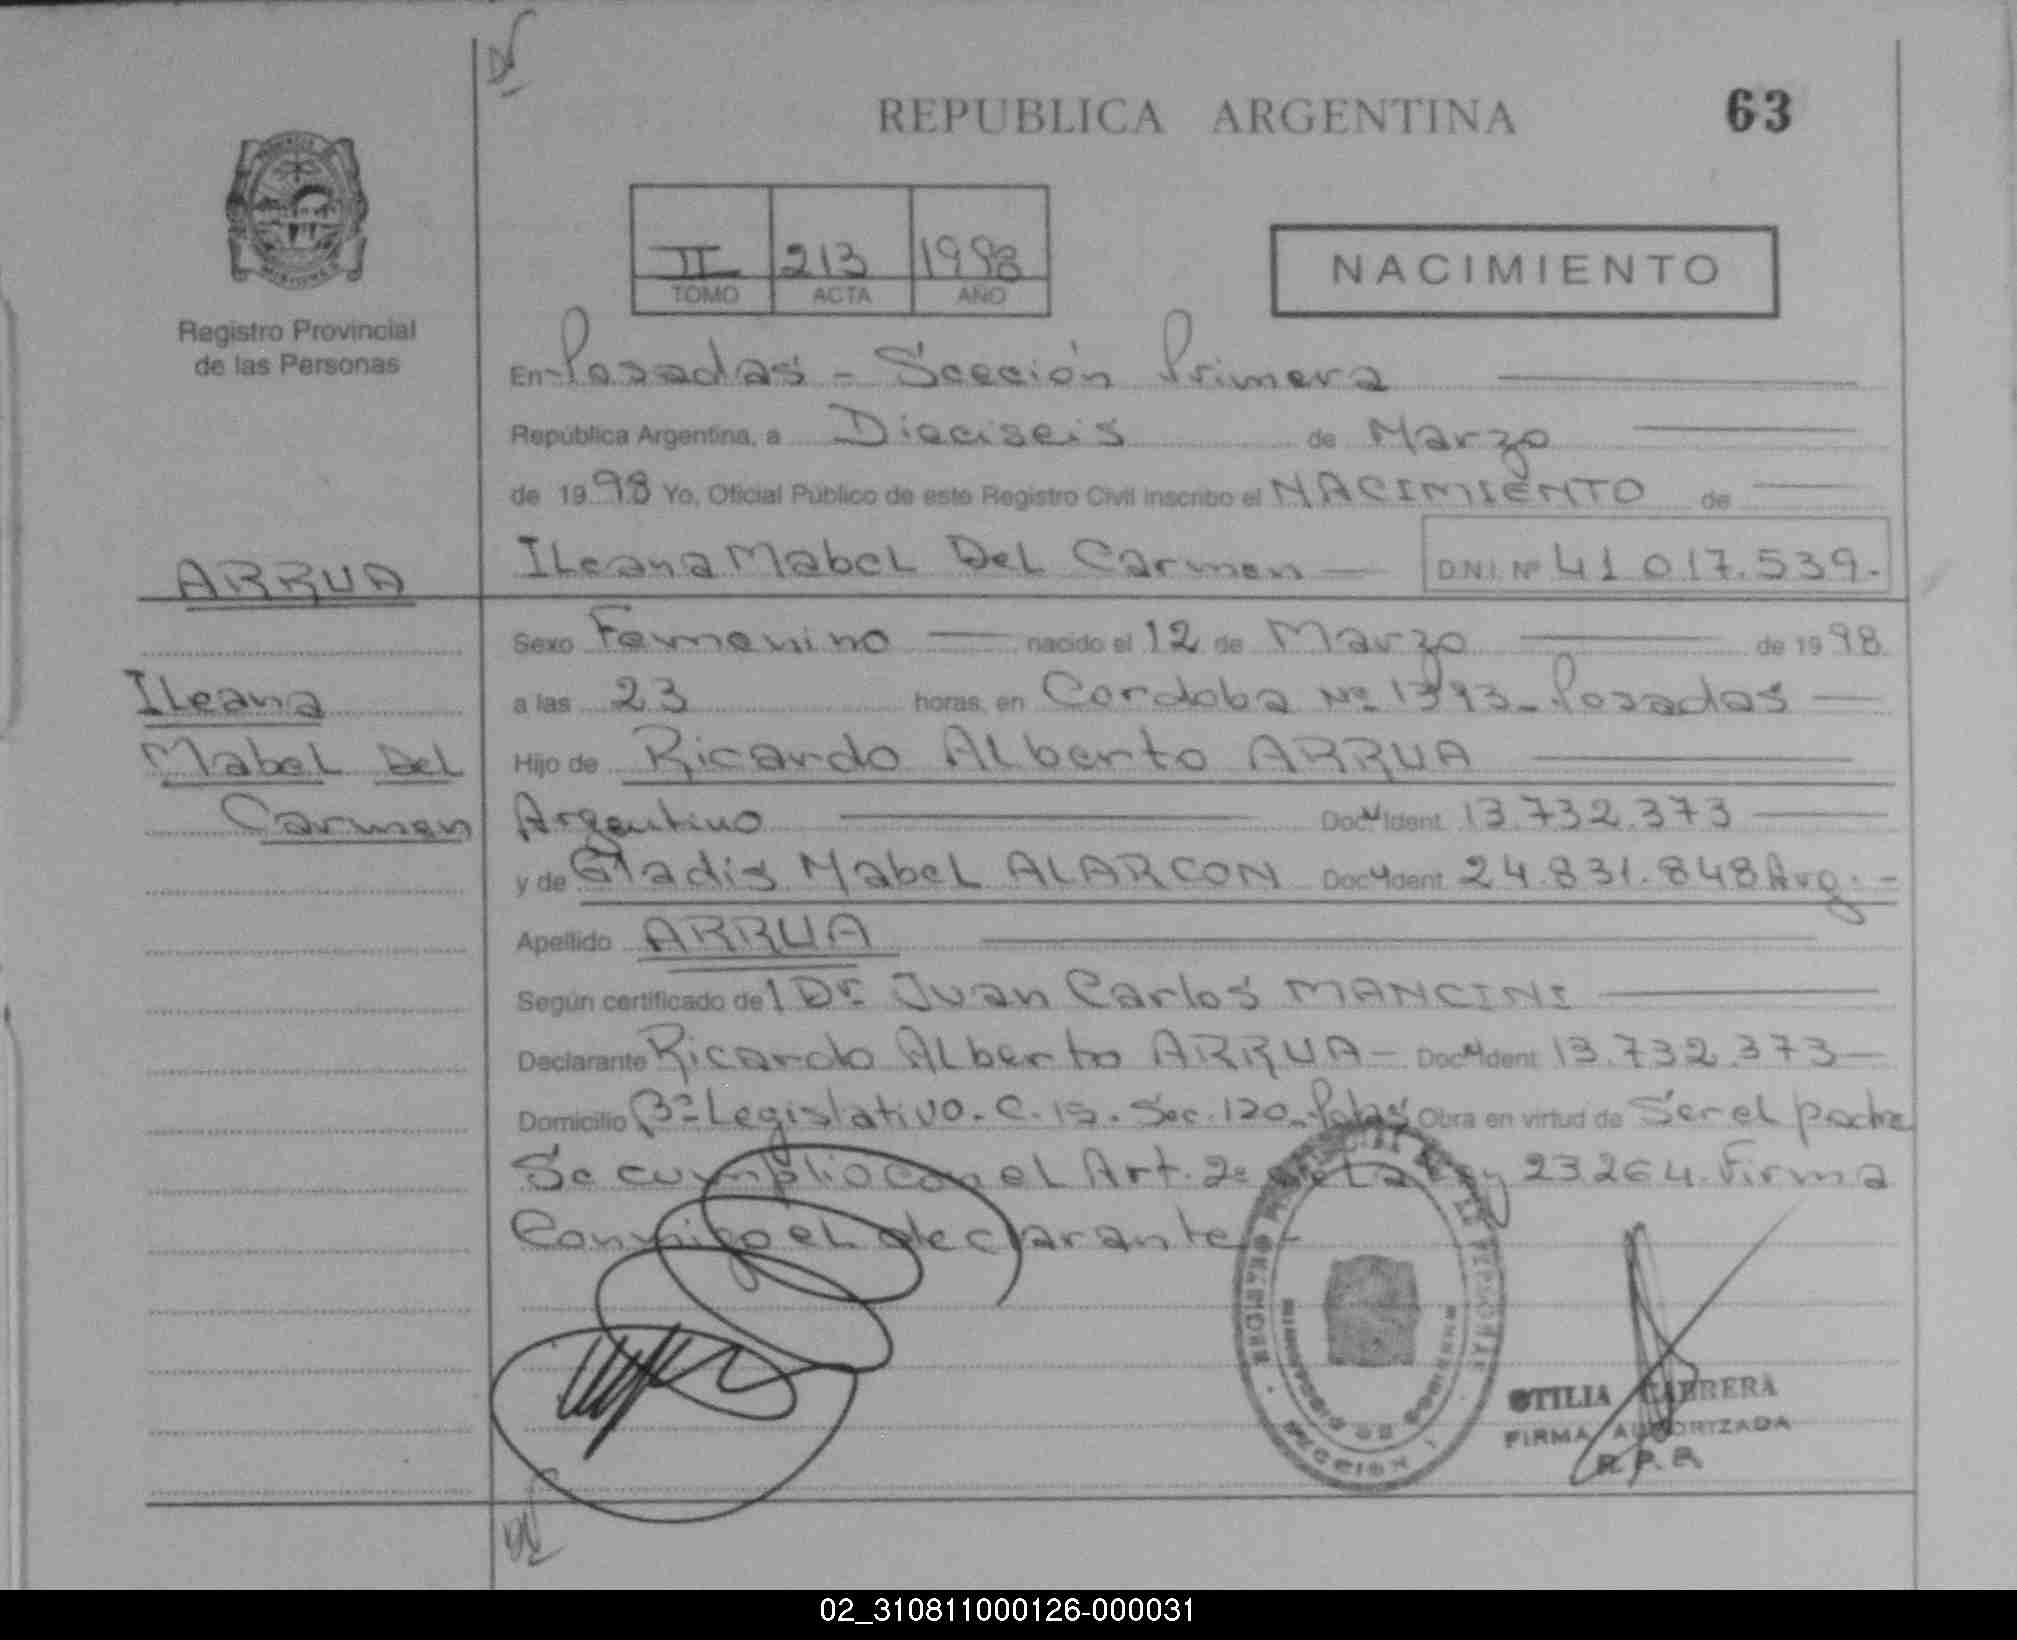 REPUBLICA ARGENTINA
63
II 213 1998
TOMO ACTA AÑO
NACIMIENTO
Registro Provincial
de las Personas
En Posadas - Sección Primera
República Argentina, a Dieciseis de Marzo
de 1998 Yo, Oficial Público de este Registro Civil inscribo el NACIMIENTO de
ARRUA
ILeana MabeL DeL Carmen D.N.I. Nº 41 017.539.-
Sexo Femenino nacido el 12 de Marzo de 1998
ILeana
MabeL DeL
Carmen
a las 23 horas, en Cordoba Nº 1393 - Posadas
Hijo de Ricardo ALberto ARRUA
Argentino Doc. Ident. 13.732.373
y de Gladis MabeL ALARCON Doc. Ident. 24.831.848 Arg.-
Apellido ARRUA
Según certificado del Dr. Juan Carlos MANCINI
Declarante Ricardo ALberto ARRUA - Doc. Ident. 13.732.373
Domicilio Bº Legislativo. C. 15. Sec. 120 - Pdas Obra en virtud de Ser eL padre
Se cumplio con eL Art. 2º de La Ley 23264. Firma
Conmigo eL declarante.-
OTILIA CABRERA
FIRMA AUTORIZADA
R.P.R
02_310811000126-000031